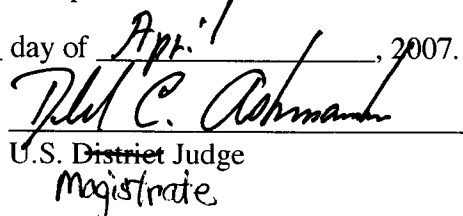 day of April, 2007.
C.
U.S. District Judge
Magistrate